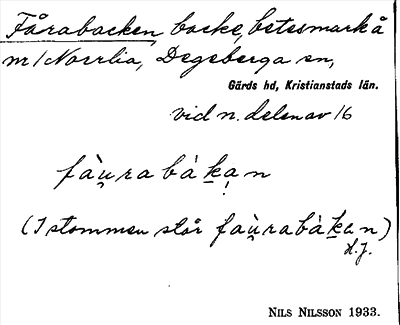 Fårabacken, backe, betesmark å
m/Norrlia, Degeberga sn,
Gärds hd, Kristianstads län.
vid n. delen av 16
fàu̯rabákạn
(I stommen står fàu̯rabákan)
d.y.
NILS NILSSON 1933.